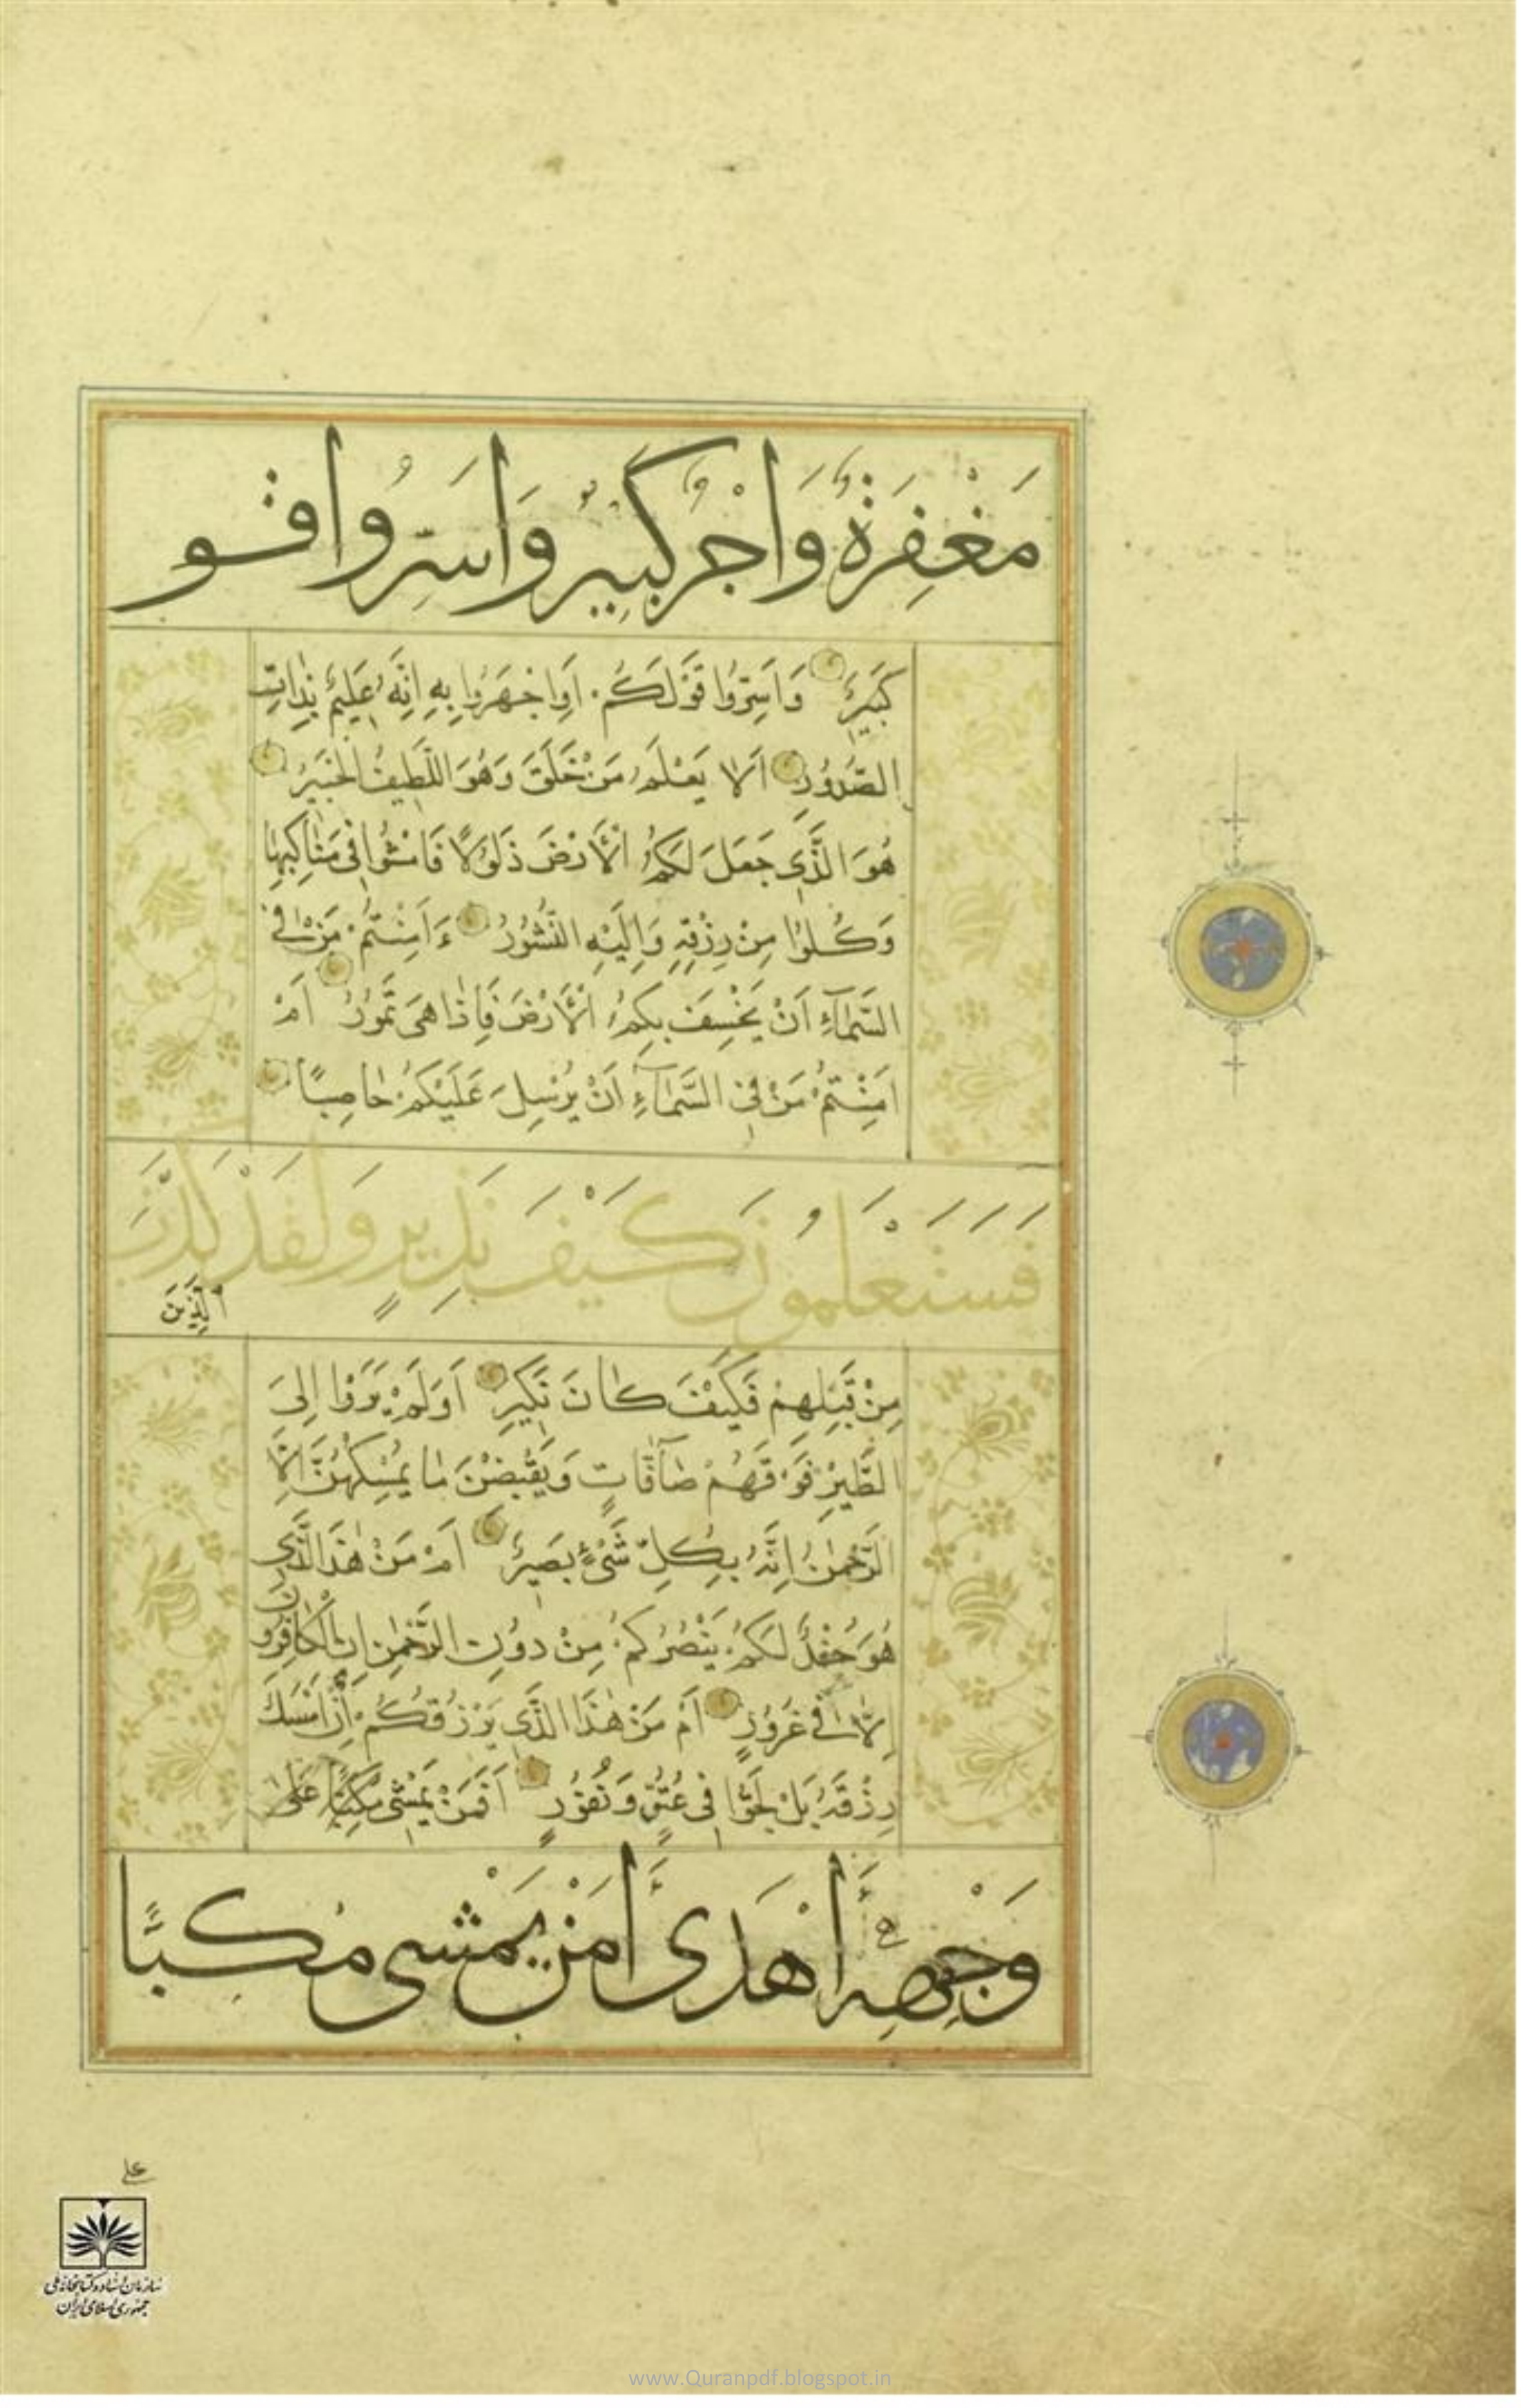 مَغْفِرَةٌ وَاَجْرٌ كَبِيرٌ وَاَسِرُّوا قو
كَبِيرٌ وَاَسِرُّوا قَوْلَكُمْ اَوِ اجْهَرُوا بِهِ اِنَّهُ عَلِيمٌ بِذَاتِ
الصُّدُورِ اَلَا يَعْلَمُ مَنْ خَلَقَ وَهُوَ اللَّطِيفُ الْخَبِيرُ
هُوَ الَّذِي جَعَلَ لَكُمُ الْأَرْضَ ذَلُولًا فَامْشُوا فِي مَنَاكِبِهَا
وَكُلُوا مِنْ رِزْقِهِ وَاِلَيْهِ النُّشُورُ ءَاَمِنْتُمْ مَنْ فِي
السَّمَآءِ اَنْ يَخْسِفَ بِكُمُ الْأَرْضَ فَاِذَا هِيَ تَمُورُ اَمْ
اَمِنْتُمْ مَنْ فِي السَّمَآءِ اَنْ يُرْسِلَ عَلَيْكُمْ حَاصِبًا
فَسَتَعْلَمُونَ كَيْفَ نَذِيرِ وَلَقَدْ كَذَّبَ
الَّذِينَ
مِنْ قَبْلِهِمْ فَكَيْفَ كَانَ نَكِيرِ اَوَلَمْ يَرَوْا اِلَى
الطَّيْرِ فَوْقَهُمْ صَآفَّاتٍ وَيَقْبِضْنَ مَا يُمْسِكُهُنَّ اِلَّا
الرَّحْمٰنُ اِنَّهُ بِكُلِّ شَيْءٍ بَصِيرٌ اَمْ مَنْ هٰذَا الَّذِي
هُوَ جُنْدٌ لَكُمْ يَنْصُرُكُمْ مِنْ دُونِ الرَّحْمٰنِ اِنِ الْكَافِرُونَ
اِلَّا فِي غُرُورٍ اَمْ مَنْ هٰذَا الَّذِي يَرْزُقُكُمْ اِنْ اَمْسَكَ
رِزْقَهُ بَلْ لَجُّوا فِي عُتُوٍّ وَنُفُورٍ اَفَمَنْ يَمْشِي مُكِبًّا عَلَى
وَجْهِهِ اَهْدَى اَمَّنْ يَمْشِي مُكِبًّا
سازمان اسناد و کتابخانه ملی
جمهوری اسلامی ایران
www.Quranpdf.blogspot.in